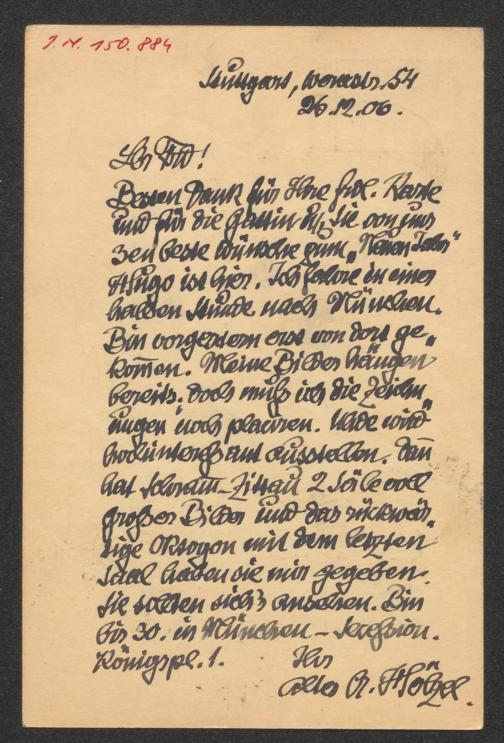 J.N. 150.884
Stuttgart, Werastr. 54
26.12.06.
Lbr Frd!
Besten Dank für Ihre frdl. Karte
und für die Gattin u. Sie von uns
zen beste Wünsche zum „Neuen Jahr"
Hugo ist hier. Ich fahre in einer
halben Stunde nach München.
Bin vorgestern erst von dort ge„
kom̄en. Meine Bilder hängen
bereits. doch muß ich die Zeichn„
ungen noch placiren. Uhde wird
hochinteressant ausstellen. dan̄
hat Schram̄-Zittau 2 Säle voll
großer Bilder und das rückwär„
tige Oktogon mit dem letzten
Saal haben sie mir gegeben.
Sie sollten sich's ansehen. Bin
bis 30. in München – Secession.
Königspl. 1.
Ihr
alter A. Hölzel.